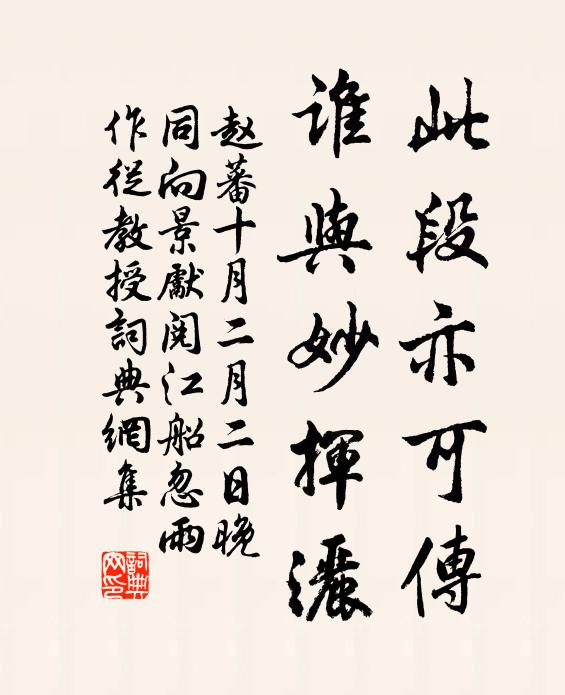 此段亦可傳
誰與妙揮灑
赵蕃十月二月二日晚
同向景獻閱江船忽雨
作從教授詞典網集
詞典
网印